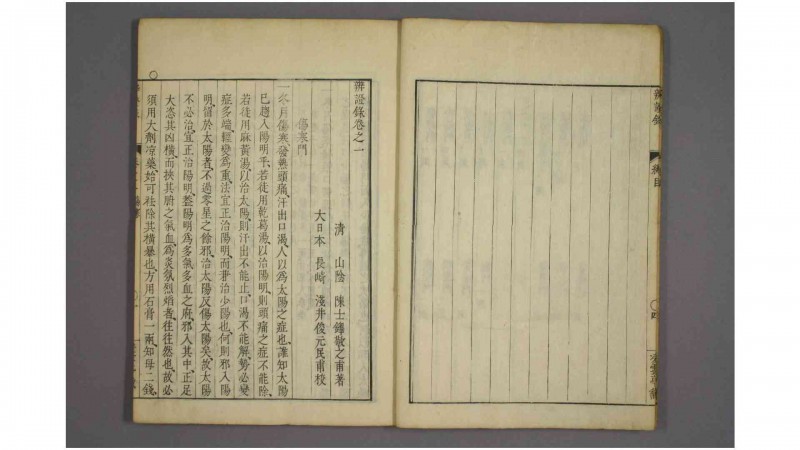 辨證錄卷之一
清 山陰 陳士鐸敬之甫著
大日本 長崎 淺井俊元民甫校
傷寒門
一冬月傷寒、發熱頭痛、汗出口渴、人以爲太陽之症也、誰知太陽
已趨入陽明乎、若徒用乾葛湯、以治陽明、則頭痛之症不能除、
若徒用麻黃湯、以治太陽、則汗出不能止、口渴不能解、勢必變
症多端、輕變爲重、法宜正治陽明、而兼治少陽也、何則邪入陽
明、留於太陽者、不過零星之餘邪、治太陽反傷太陽矣、故太陽
不必治、宜正治陽明、蓋陽明爲多氣多血之府、邪入其中、正足
大恣其凶橫、而挾其腑之氣血、爲炎氛烈焰者、往往然也、故必
須用大劑凉藥、始可祛除其橫暴也、方用石膏一兩、知母二錢、
辨證錄
總目
四